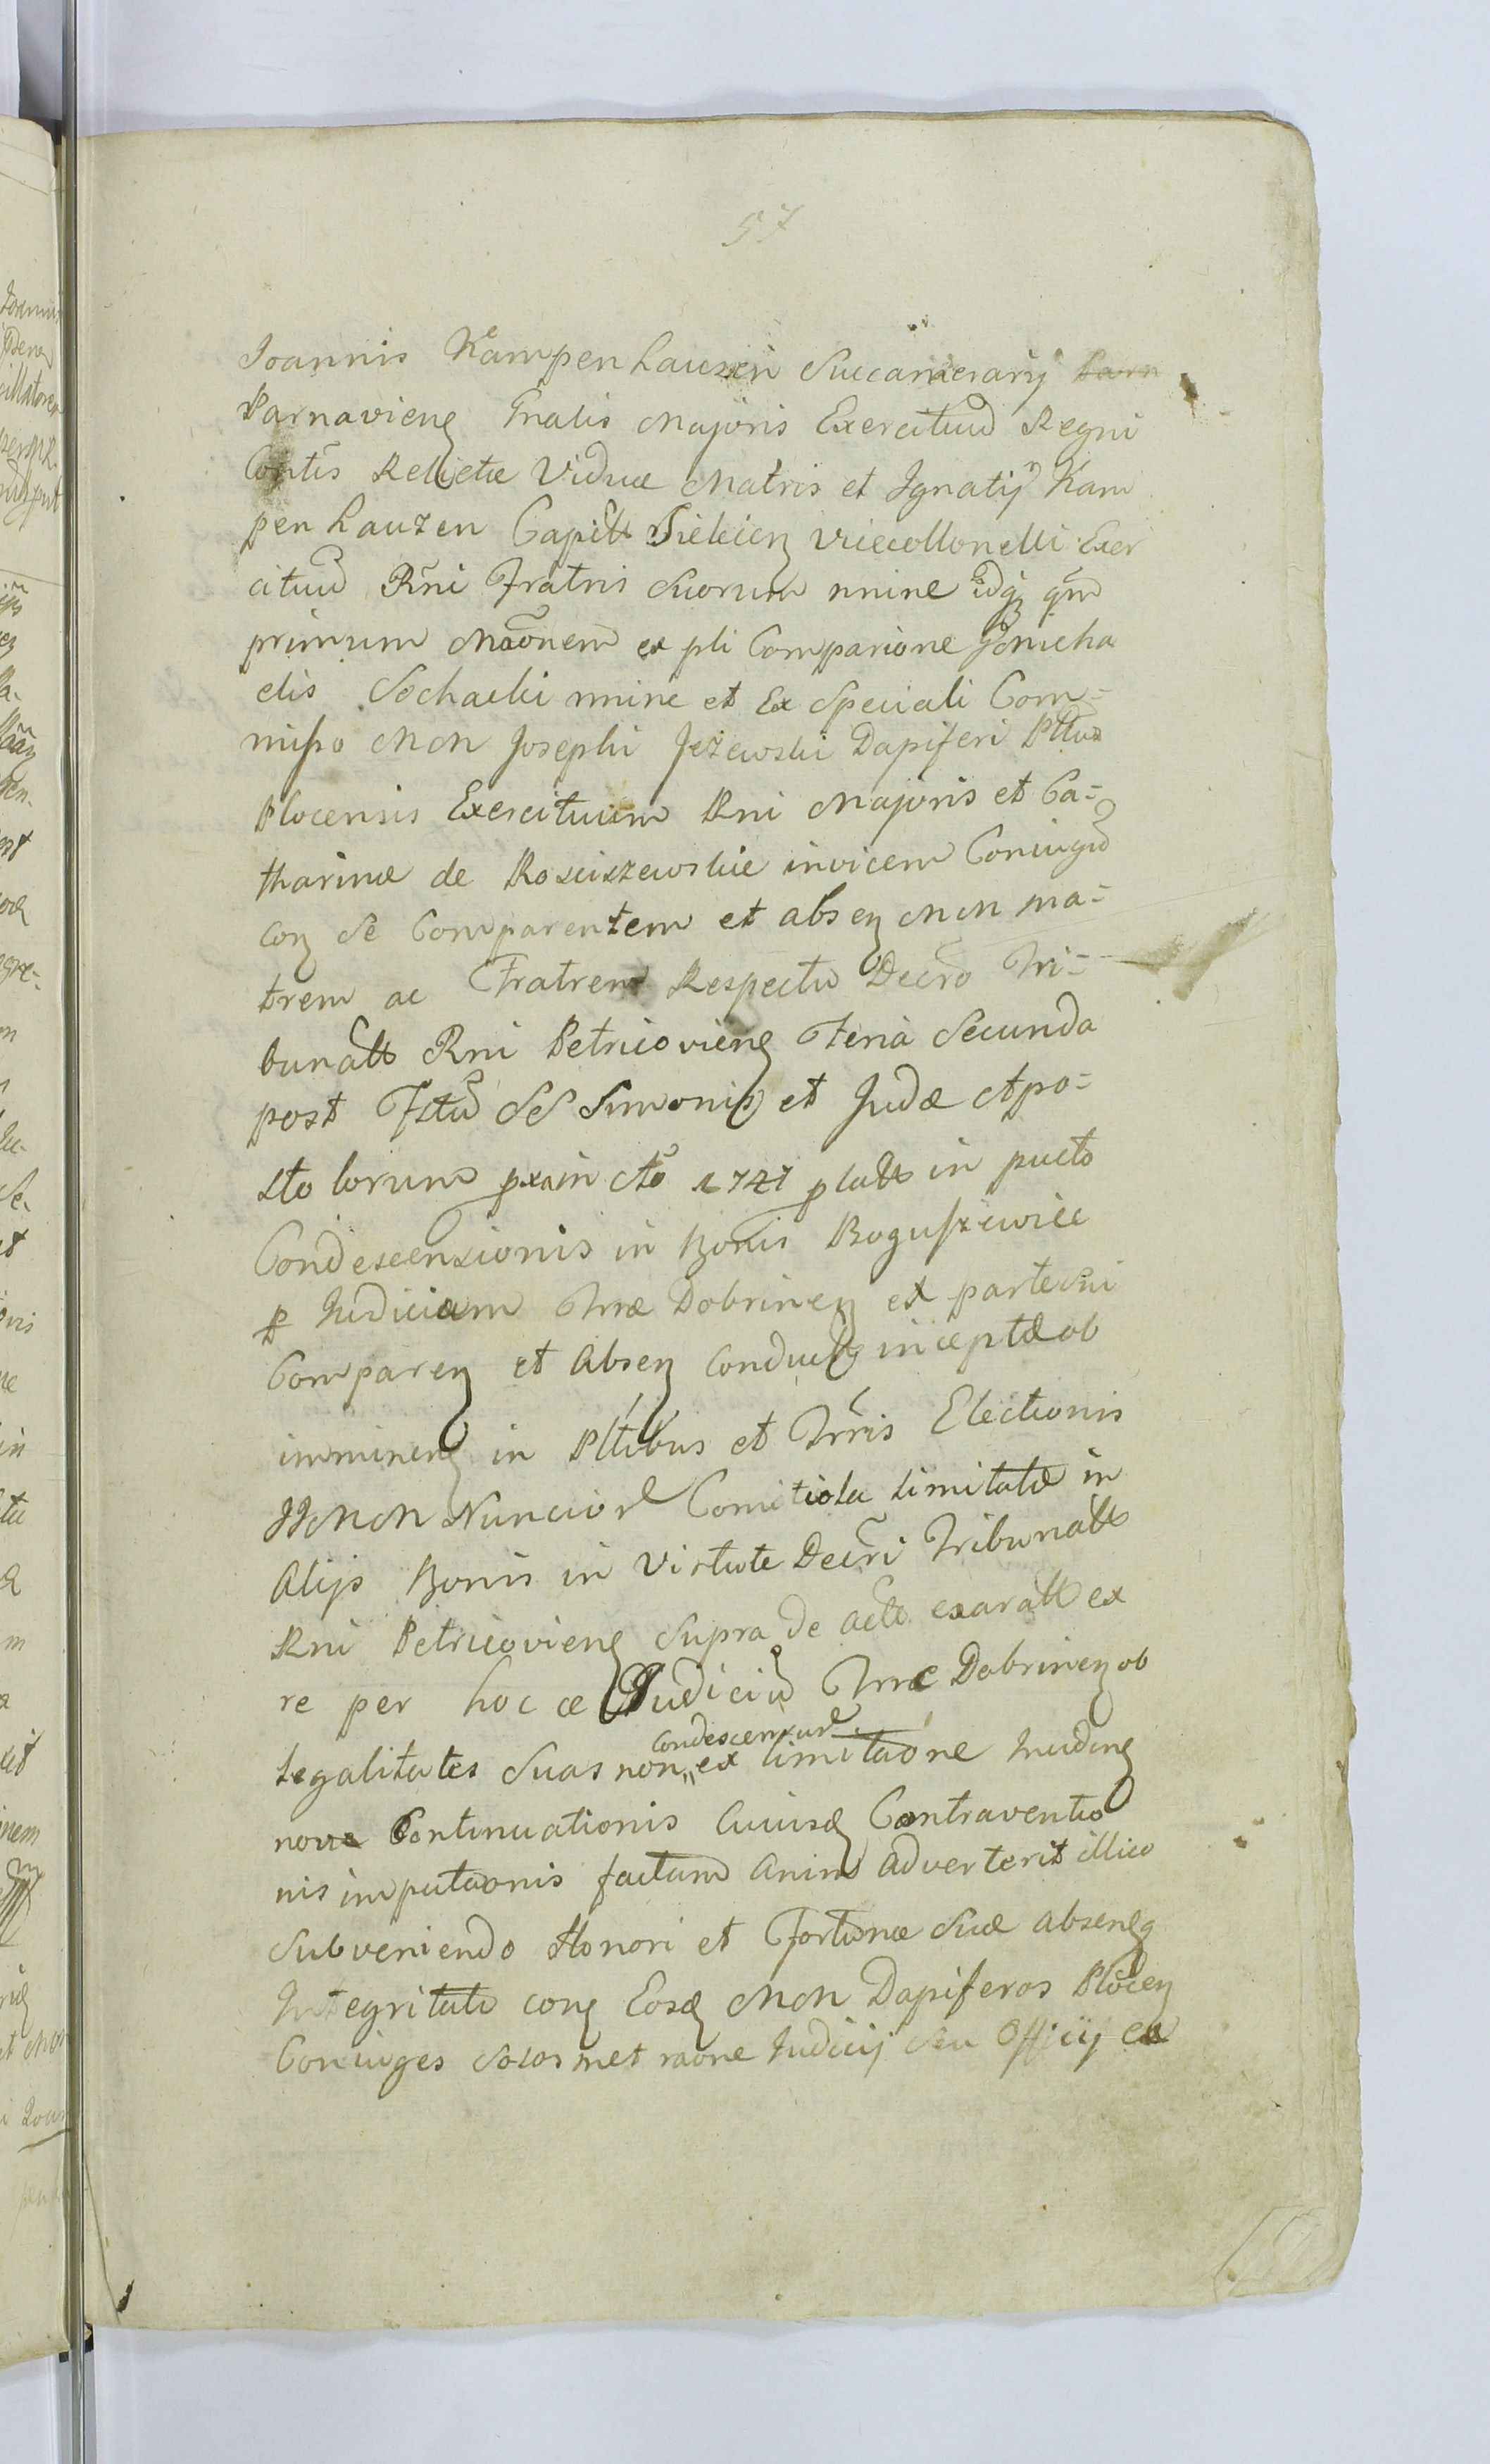 57
Joannis Kampenhauzen Succamerarij Parn
Parnavieñ Gnalis Majoris Exercituũ Regni
Contis Relictæ Viduæ Matris et Ignatij Kam
penhauzen Capitt Vicecollonelli Exer
cituũ Rñi Fratris Suorum nnine idq
primum ex pli Comparione Micha
elis Sochacki nnine et Ex Speciali Com=
misso MM Josephi Jezewski Dapiferi Pttus
Plocensis Exercituum Rni Majoris et Ca=
tharinæ de Rosciszewskie invicem Coniugũ
cor Se Comparentem et absen MM ma=
trem ac Fratrem Respectu Decro Tri=
bunatt Rni Petricovien Feria Secunda
post Fstũ SS Simonis et Judæ Apo=
stolorum pxa in Ao 1747 platt in pucto
Condescensionis in Bonis Boguszewice
p Judicium Træ Dobrinen ex parte Sui
Comparen et Absen Conduc inceptæ ob
imminen in Pttibus et Trris Electionis
JJ MM Nuncior Comitiola limitatæ in
Alijs Bonis in Virtute Decri Tribunatt
Rni Petricovien Supra de acto exaratt ex
re per hocce Judiciũ Træ Dobrinen ob
legalitates Suas non,, condescensur ex limitaone
novæ Continuationis Cuiusd Contraventio
nis imputaonis factum Anim adverterit illico
Subveniendo Honori et Fortunæ Suæ absen
Integritati con Eosd MM Dapiferos Plocen
Coniuges Solosmet raone Judicij Seu Officij ex